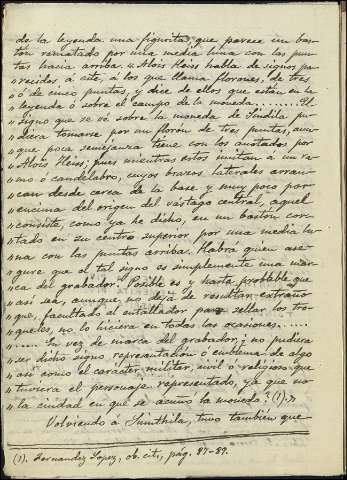 de la leyenda una figurita, que parece un bas-
tón rematado por una media luna con las pun-
tas hacia arriba. «Aloïs Heiss habla de signos pa-
» recidos á éste, á los que llama florones, de tres
» ó de cinco puntas, y dice de ellos que están en la
» leyenda ó sobre el campo de la moneda........ El
» signo que se vé sobre la moneda de Suídila pu-
» diera tomarse por un florón de tres puntas, aun-
» que poca semejanza tiene con los anotados por
» Aloïs Heiss; pues mientras estos imitan á un ra-
» mo ó candelabro, cuyos brazos laterales arran-
» can desde cerca de la base y muy poco por
» encima del origen del vástago central, aquel
» consiste, como ya he dicho, en un bastón cor-
» tado en su centro superior por una media lu-
» na con las puntas arriba. Habrá quien ase-
» gure que el tal signo es simplemente una mar-
» ca del grabador. Posible es y harto probable que
» así sea, aunque no deja de resultar extraño
» que, facultado el entallador para sellar los tro-
» queles, no lo hiciera en todas las ocasiones......
» ..... En vez de marca del grabador ¿no pudiera
» ser dicho signo representation ó emblema de algo
» así como el carácter militar, civil ó religioso que
» tuviera el personaje representado, ya que no
» la ciudad en que se acuñó la moneda? (1).»
Volviendo á Suinthila, tuvo también que
(1). Fernandez Lopez, ob. cit., pag. 87-89.